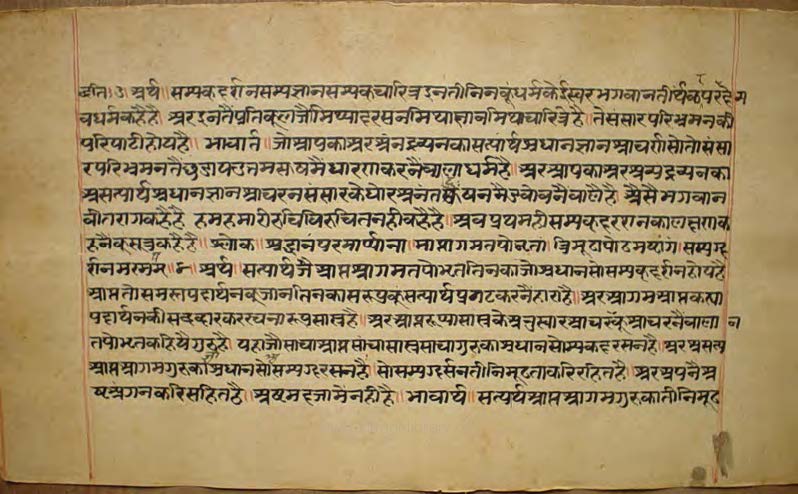 ज्ञति ३ अर्थ ॥ सम्यकदर्शनसम्यज्ञानसम्यकचारित्र इनतीनिनकूं धर्मकेईस्वरभगवानतीर्थंकपरहैग
वधर्मकहैहै अरइनतैंप्रतिकूलजौमिथ्यादरसनमिथाज्ञानमिथाचारित्रहै तेसंसारपरिभ्रमनकी
परिपाटीहोयहै भावार्त ॥ जोआपकाअरअंनद्रव्यनकासत्यार्थश्रधानज्ञानआचरणसोतोसंसा
रपरिभ्रमनतैछुडाय उत्तमसषमैंधारणकरनैवालाधर्महै अरआपकाअरअन्यद्रव्यनका
असत्यार्थश्रधानज्ञानआचरनसंसारकेघोरअनंत मैडवोवनैवालैहै औसैभगवान
वीतरागकहैहै हमहमारीरुचिविरुचितनहीकहैहै ॥ अवप्रथमहीसम्यकदररानकालक्षणक
हनैकूंसूत्रकहैहै ॥ श्लोक ॥ श्रद्धानंपरमार्थाना ॥ माप्तागमतपोभृतां ॥ त्रिमूढापोढमष्टांगं ॥ सम्यग्द
र्शनमस्मयं ॥ ४ ॥ अर्थ ॥ सत्यार्थजैआप्तआगमतपोभृततिनकाजोश्रधानसोसम्यकदर्शनहोयहै
आप्ततोसमस्तपदार्थनकूजानतिनकासरूपकूसत्यार्थप्रगटकरनैहाराहै ॥ अरआगमआप्तकह्या
पदार्थनकीसब्दद्वारकररचनारूपसास्त्रहै ॥ अरआप्तरूप्यासास्त्रकेअनुस्वारआचरणकूंआचरनैवाला न
तपोभृतकहियेगुरुहै यहाजौसाचाआप्तसांचासास्त्रसाचागुरुकाश्रधानसोम्यकदरसनहै ॥ अरअसत्य
आप्तआगमगुरुकाश्रधानसोसंम्यगदरसनहै ॥ सोसम्यगदर्सनतीनिमूढताकरिरहितहै ॥ अरअपनैअ
ष्टअंगनकरिसहितहै ॥ अष्टमदजामेंनहीहै ॥ भावार्थ ॥ सत्यर्थआप्तआगमगुरुकातीनिमूढ